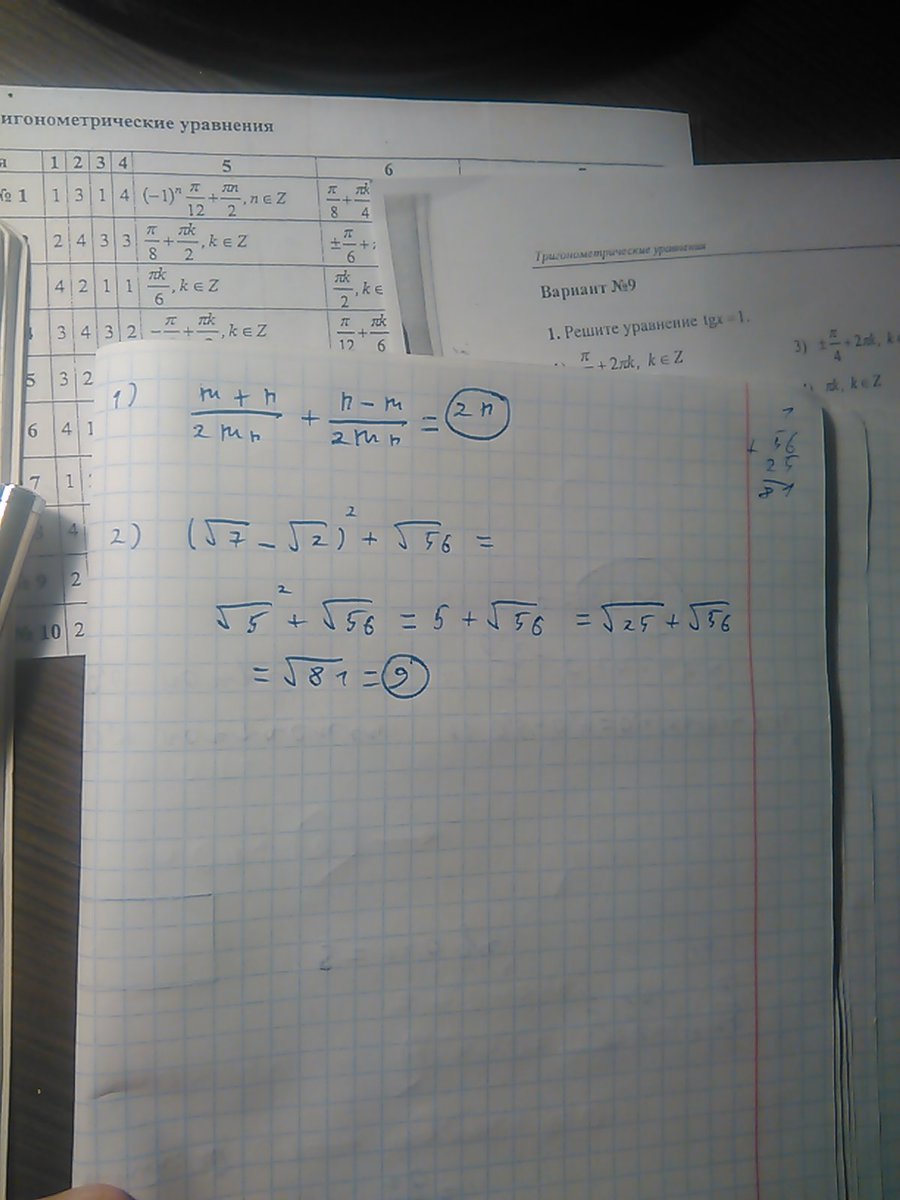 игонометрические уравнения
я 1 2 3 4 5 6
№ 1 1 3 1 4 (−1)ⁿ π/12 + πn/2, n ∈ Z π/8 + πk/4
2 4 3 3 π/8 + πk/2, k ∈ Z ±π/6 +
4 2 1 1 πk/6, k ∈ Z πk/2, k ∈
3 4 3 2 −π/ + πk/, k ∈ Z π/12 + πk/6
5 3 2
6 4 1
7 1
4
9 2
№ 10 2
Тригонометрические уравнения
Вариант №9
1. Решите уравнение tgx = 1.
π/ + 2πk, k ∈ Z
3) ±π/4 + 2πk, k
πk, k ∈ Z
1) (m + n)/(2mn) + (n − m)/(2mn) = 2n
1
+ 56
25
81
2) (√7 − √2)² + √56 =
√5² + √56 = 5 + √56 = √25 + √56
= √81 = 9